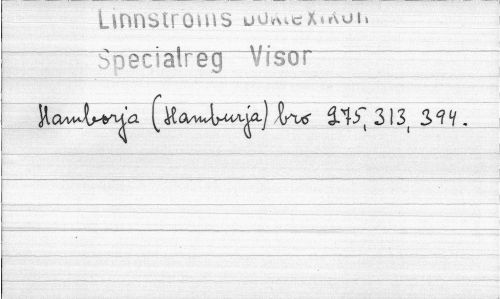 Linnströms Boklexikon
Specialreg Visor
Hamborja (Hamburja) bro 275, 313, 394.